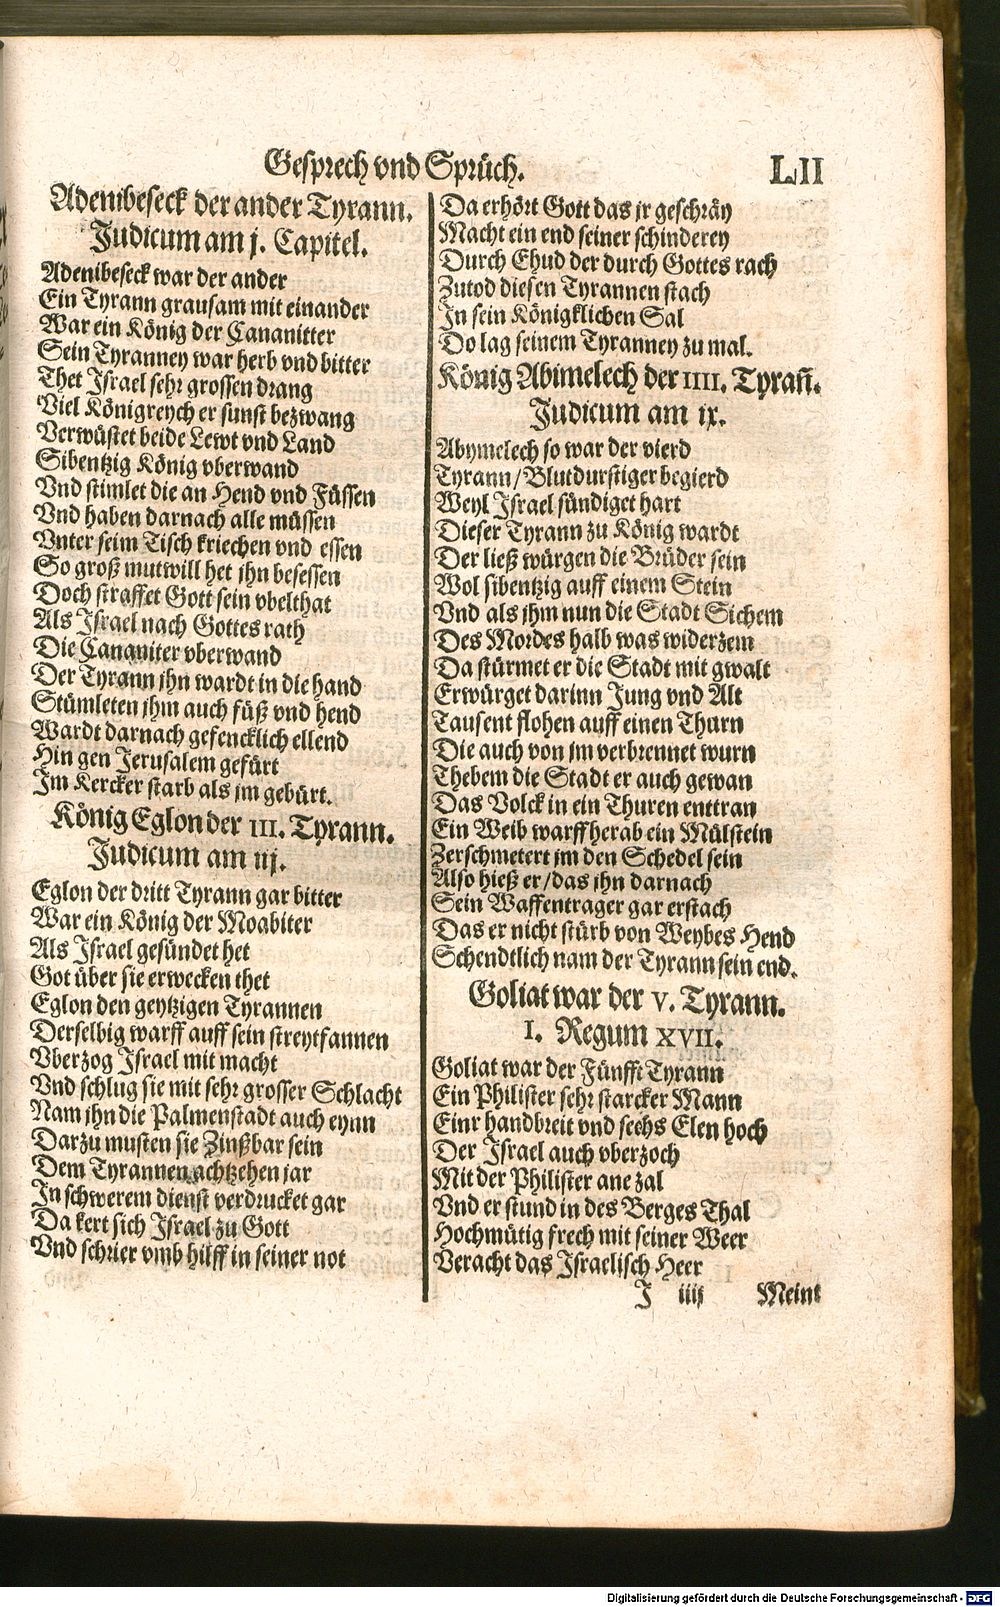 Gesprech vnd Sprüch. LII
Adenibeseck der ander Tyrann.
Judicum am j. Capitel.
Adenibeseck war der ander
Ein Tyrann grausam mit einander
War ein König der Cananitter
Sein Tyranney war herb vnd bitter
Thet Israel sehr grossen drang
Viel Königreych er sunst bezwang
Verwüstet beide Lewt vnd Land
Sibentzig König vberwand
Vnd stimlet die an Hend vnd Füssen
Vnd haben darnach alle müssen
Vnter seim Tisch kriechen vnd essen
So groß mutwill het jhn besessen
Doch straffet Gott sein vbelthat
Als Israel nach Gottes rath
Die Cananiter vberwand
Der Tyrann jhn wardt in die hand
Stümleten jhm auch füß vnd hend
Wardt darnach gefencklich ellend
Hin gen Jerusalem gefürt
Im Kercker starb als jm gebürt.
König Eglon der III. Tyrann.
Judicum am iij.
Eglon der dritt Tyrann gar bitter
War ein König der Moabiter
Als Israel gesündet het
Got über sie erwecken thet
Eglon den geytzigen Tyrannen
Derselbig warff auff sein streytfannen
Vberzog Israel mit macht
Vnd schlug sie mit sehr grosser Schlacht
Nam jhn die Palmenstadt auch eynn
Darzu musten sie Zinßbar sein
Dem Tyrannen achtzehen jar
In schwerem dienst verdrucket gar
Da kert sich Israel zu Gott
Vnd schrier vmb hilff in seiner not
Da erhört Gott das jr geschräy
Macht ein end seiner schinderey
Durch Ehud der durch Gottes rach
Zutod diesen Tyrannen stach
In sein Königklichen Sal
Do lag seinem Tyranney zu mal.
König Abimelech der IIII. Tyrañ.
Judicum am ix.
Abymelech so war der vierd
Tyrann/Blutdurstiger begierd
Weyl Israel sündiget hart
Dieser Tyrann zu König wardt
Der ließ würgen die Brüder sein
Wol sibentzig auff einem Stein
Vnd als jhm nun die Stadt Sichem
Des Mordes halb was widerzem
Da stürmet er die Stadt mit gwalt
Erwürget darinn Jung vnd Alt
Tausent flohen auff einen Thurn
Die auch von jm verbrennet wurn
Thebem die Stadt er auch gewan
Das Volck in ein Thuren enttran
Ein Weib warff herab ein Mülstein
Zerschmetert jm den Schedel sein
Also hieß er/das jhn darnach
Sein Waffentrager gar erstach
Das er nicht stürb von Weybes Hend
Schendtlich nam der Tyrann sein end.
Goliat war der V. Tyrann.
I. Regum XVII.
Goliat war der Fünfft Tyrann
Ein Philister sehr starcker Mann
Einr handbreit vnd sechs Elen hoch
Der Israel auch vberzoch
Mit der Philister ane zal
Vnd er stund in des Berges Thal
Hochmütig frech mit seiner Weer
Veracht das Israelisch Heer
J iiij Meint
Digitalisierung gefördert durch die Deutsche Forschungsgemeinschaft - DFG